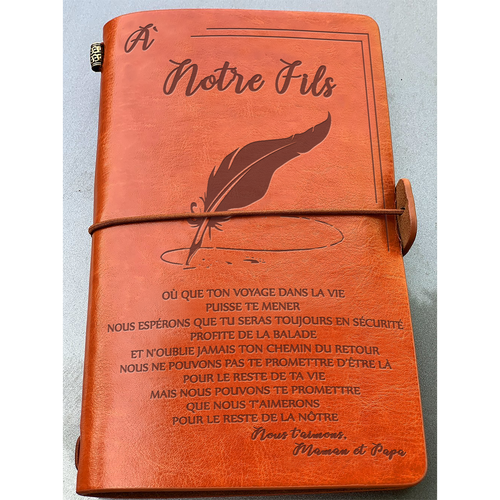 À
Notre Fils
OÙ QUE TON VOYAGE DANS LA VIE
PUISSE TE MENER
NOUS ESPÉRONS QUE TU SERAS TOUJOURS EN SÉCURITÉ
PROFITE DE LA BALADE
ET N'OUBLIE JAMAIS TON CHEMIN DU RETOUR
NOUS NE POUVONS PAS TE PROMETTRE D'ÊTRE LÀ
POUR LE RESTE DE TA VIE
MAIS NOUS POUVONS TE PROMETTRE
QUE NOUS T'AIMERONS
POUR LE RESTE DE LA NÔTRE
Nous t'aimons,
Maman et Papa